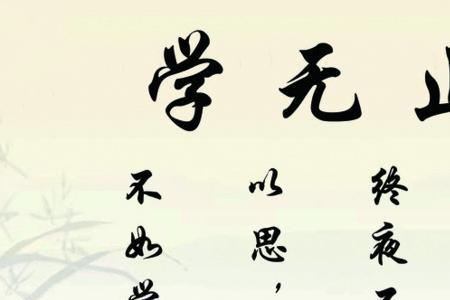 学无止
终夜不
以思，
不如学